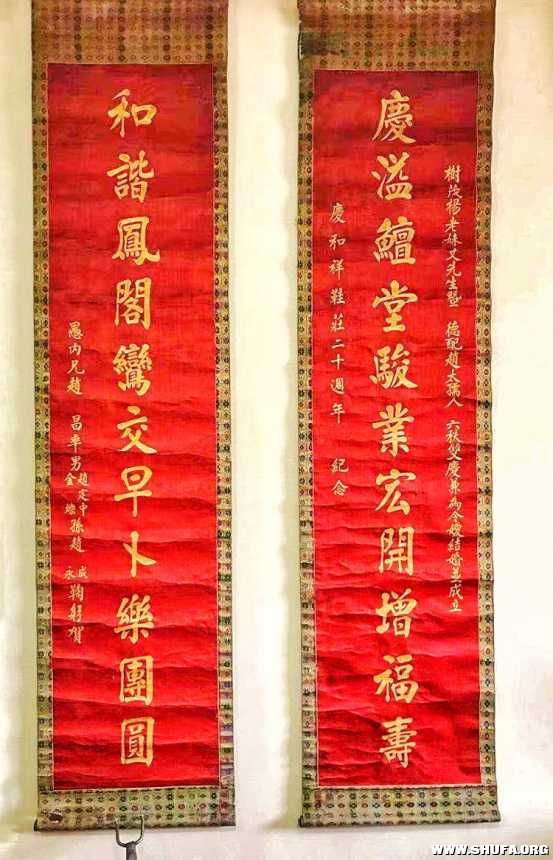 樹茂楊老妹丈先生暨 德配趙太孺人 六秩雙慶兼為令嫒結婚並成立
慶溢鱣堂駿業宏開增福壽
慶和祥鞋莊二十週年 紀念
和諧鳳閣鸞交早卜樂團圓
愚內兄趙 昌率男 趙定中 金墩 孫趙 成 永 鞠躬賀
WWW.SHUFA.ORG